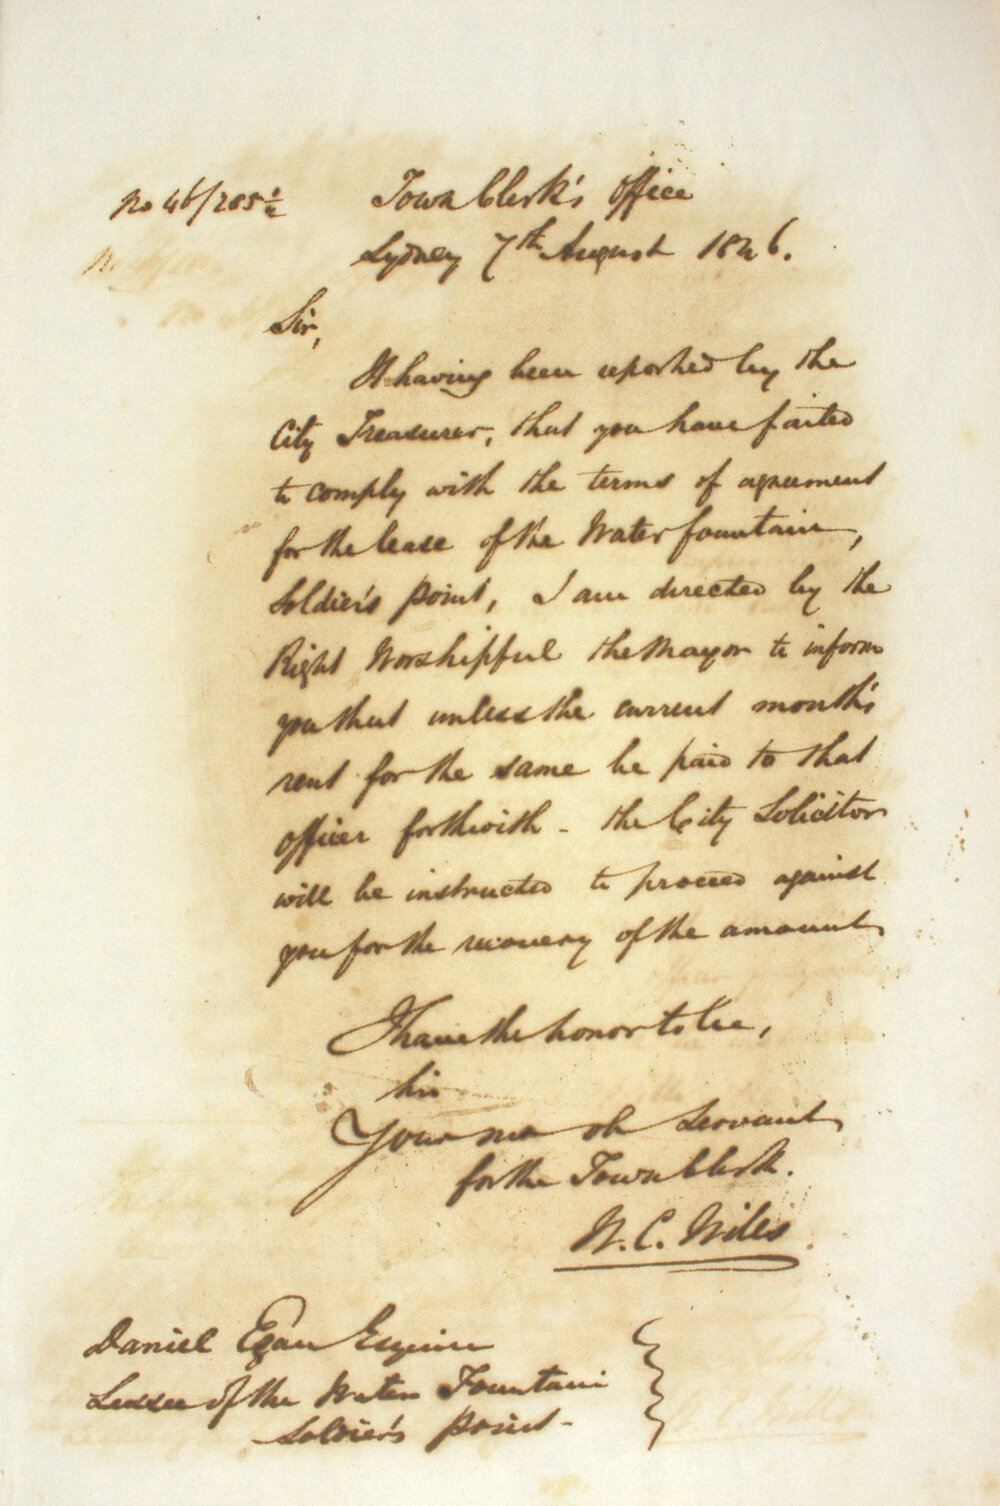 No 46/285½
Town Clerk's Office
Sydney 7th August 1846.
Sir,
It having been reported by the
City Treasurer, that you have failed
to comply with the terms of agreement
for the lease of the Water fountain,
Soldier's Point, I am directed by the
Right Worshipful the Mayor to inform
you that unless the current month's
rent for the same be paid to that
officer forthwith - the City Solicitor
will be instructed to proceed against
you for the recovery of the amount
I have the honor to be,
Sir
Your mo ob Servant
for the Town Clerk.
W. C. Wills
Daniel Egan Esquire
Lessee of the Water Fountain
Soldier's Point -